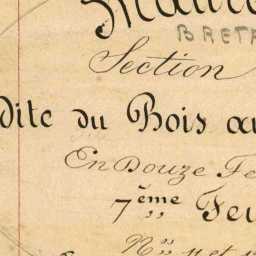 BRETA
Section
dite du Bois au
En Douze Fe
7ème Feu